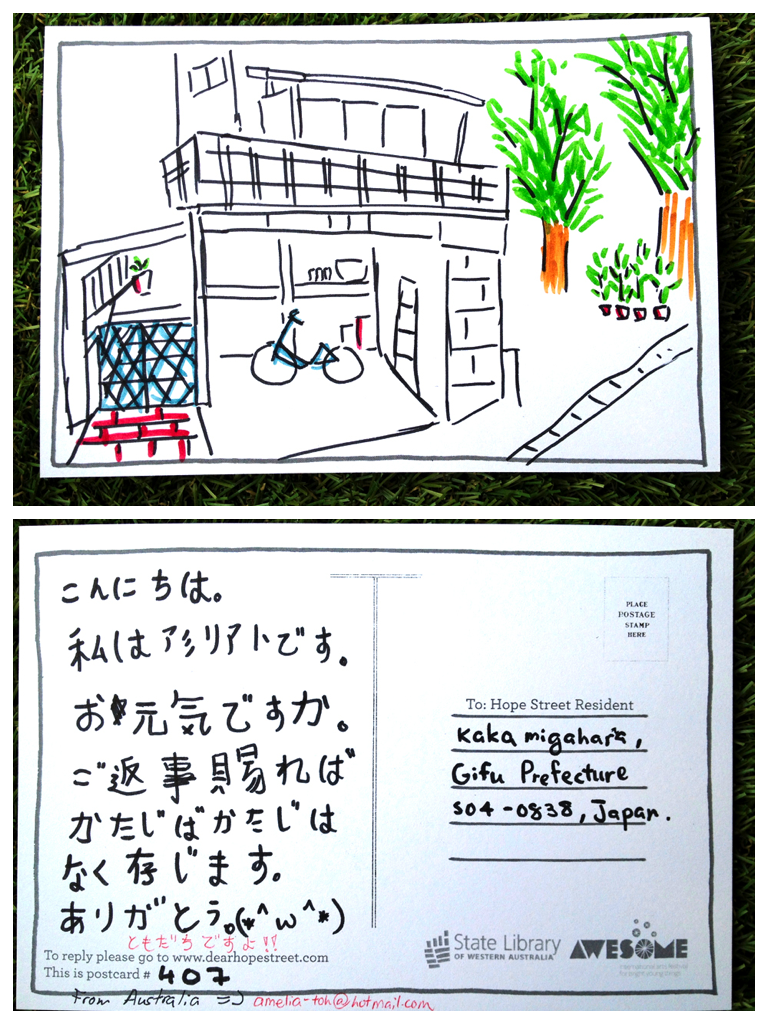 こんにちは。
私はアミリアトです。
お元気ですか。
ご返事賜れば
かたじばかたじは
なく存じます。
ありがとう。(*^ω^*)
ともだちですよ!!
To reply please go to www.dearhopestreet.com
This is postcard # 407
From Australia => amelia-toh@hotmail.com
PLACE
POSTAGE
STAMP
HERE
To: Hope Street Resident
Kakamigahara,
Gifu Prefecture
504-0838, Japan.
State Library
OF WESTERN AUSTRALIA
AWESOME